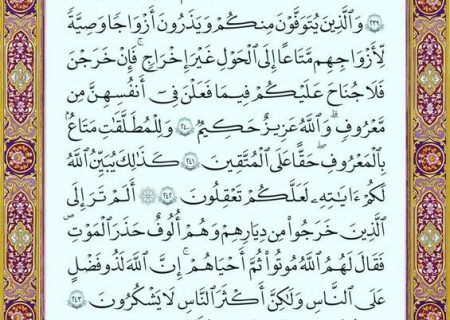 ﴿٢٣٩﴾ وَٱلَّذِينَ يُتَوَفَّوْنَ مِنكُمْ وَيَذَرُونَ أَزْوَٰجًا وَصِيَّةً
لِّأَزْوَٰجِهِم مَّتَٰعًا إِلَى ٱلْحَوْلِ غَيْرَ إِخْرَاجٍ ۚ فَإِنْ خَرَجْنَ
فَلَا جُنَاحَ عَلَيْكُمْ فِى مَا فَعَلْنَ فِىٓ أَنفُسِهِنَّ مِن
مَّعْرُوفٍ ۗ وَٱللَّهُ عَزِيزٌ حَكِيمٌ ﴿٢٤٠﴾ وَلِلْمُطَلَّقَٰتِ مَتَٰعٌۢ
بِٱلْمَعْرُوفِ ۖ حَقًّا عَلَى ٱلْمُتَّقِينَ ﴿٢٤١﴾ كَذَٰلِكَ يُبَيِّنُ ٱللَّهُ
لَكُمْ ءَايَٰتِهِۦ لَعَلَّكُمْ تَعْقِلُونَ ﴿٢٤٢﴾ ۞ أَلَمْ تَرَ إِلَى
ٱلَّذِينَ خَرَجُوا۟ مِن دِيَٰرِهِمْ وَهُمْ أُلُوفٌ حَذَرَ ٱلْمَوْتِ
فَقَالَ لَهُمُ ٱللَّهُ مُوتُوا۟ ثُمَّ أَحْيَٰهُمْ ۚ إِنَّ ٱللَّهَ لَذُو فَضْلٍ
عَلَى ٱلنَّاسِ وَلَٰكِنَّ أَكْثَرَ ٱلنَّاسِ لَا يَشْكُرُونَ ﴿٢٤٣﴾